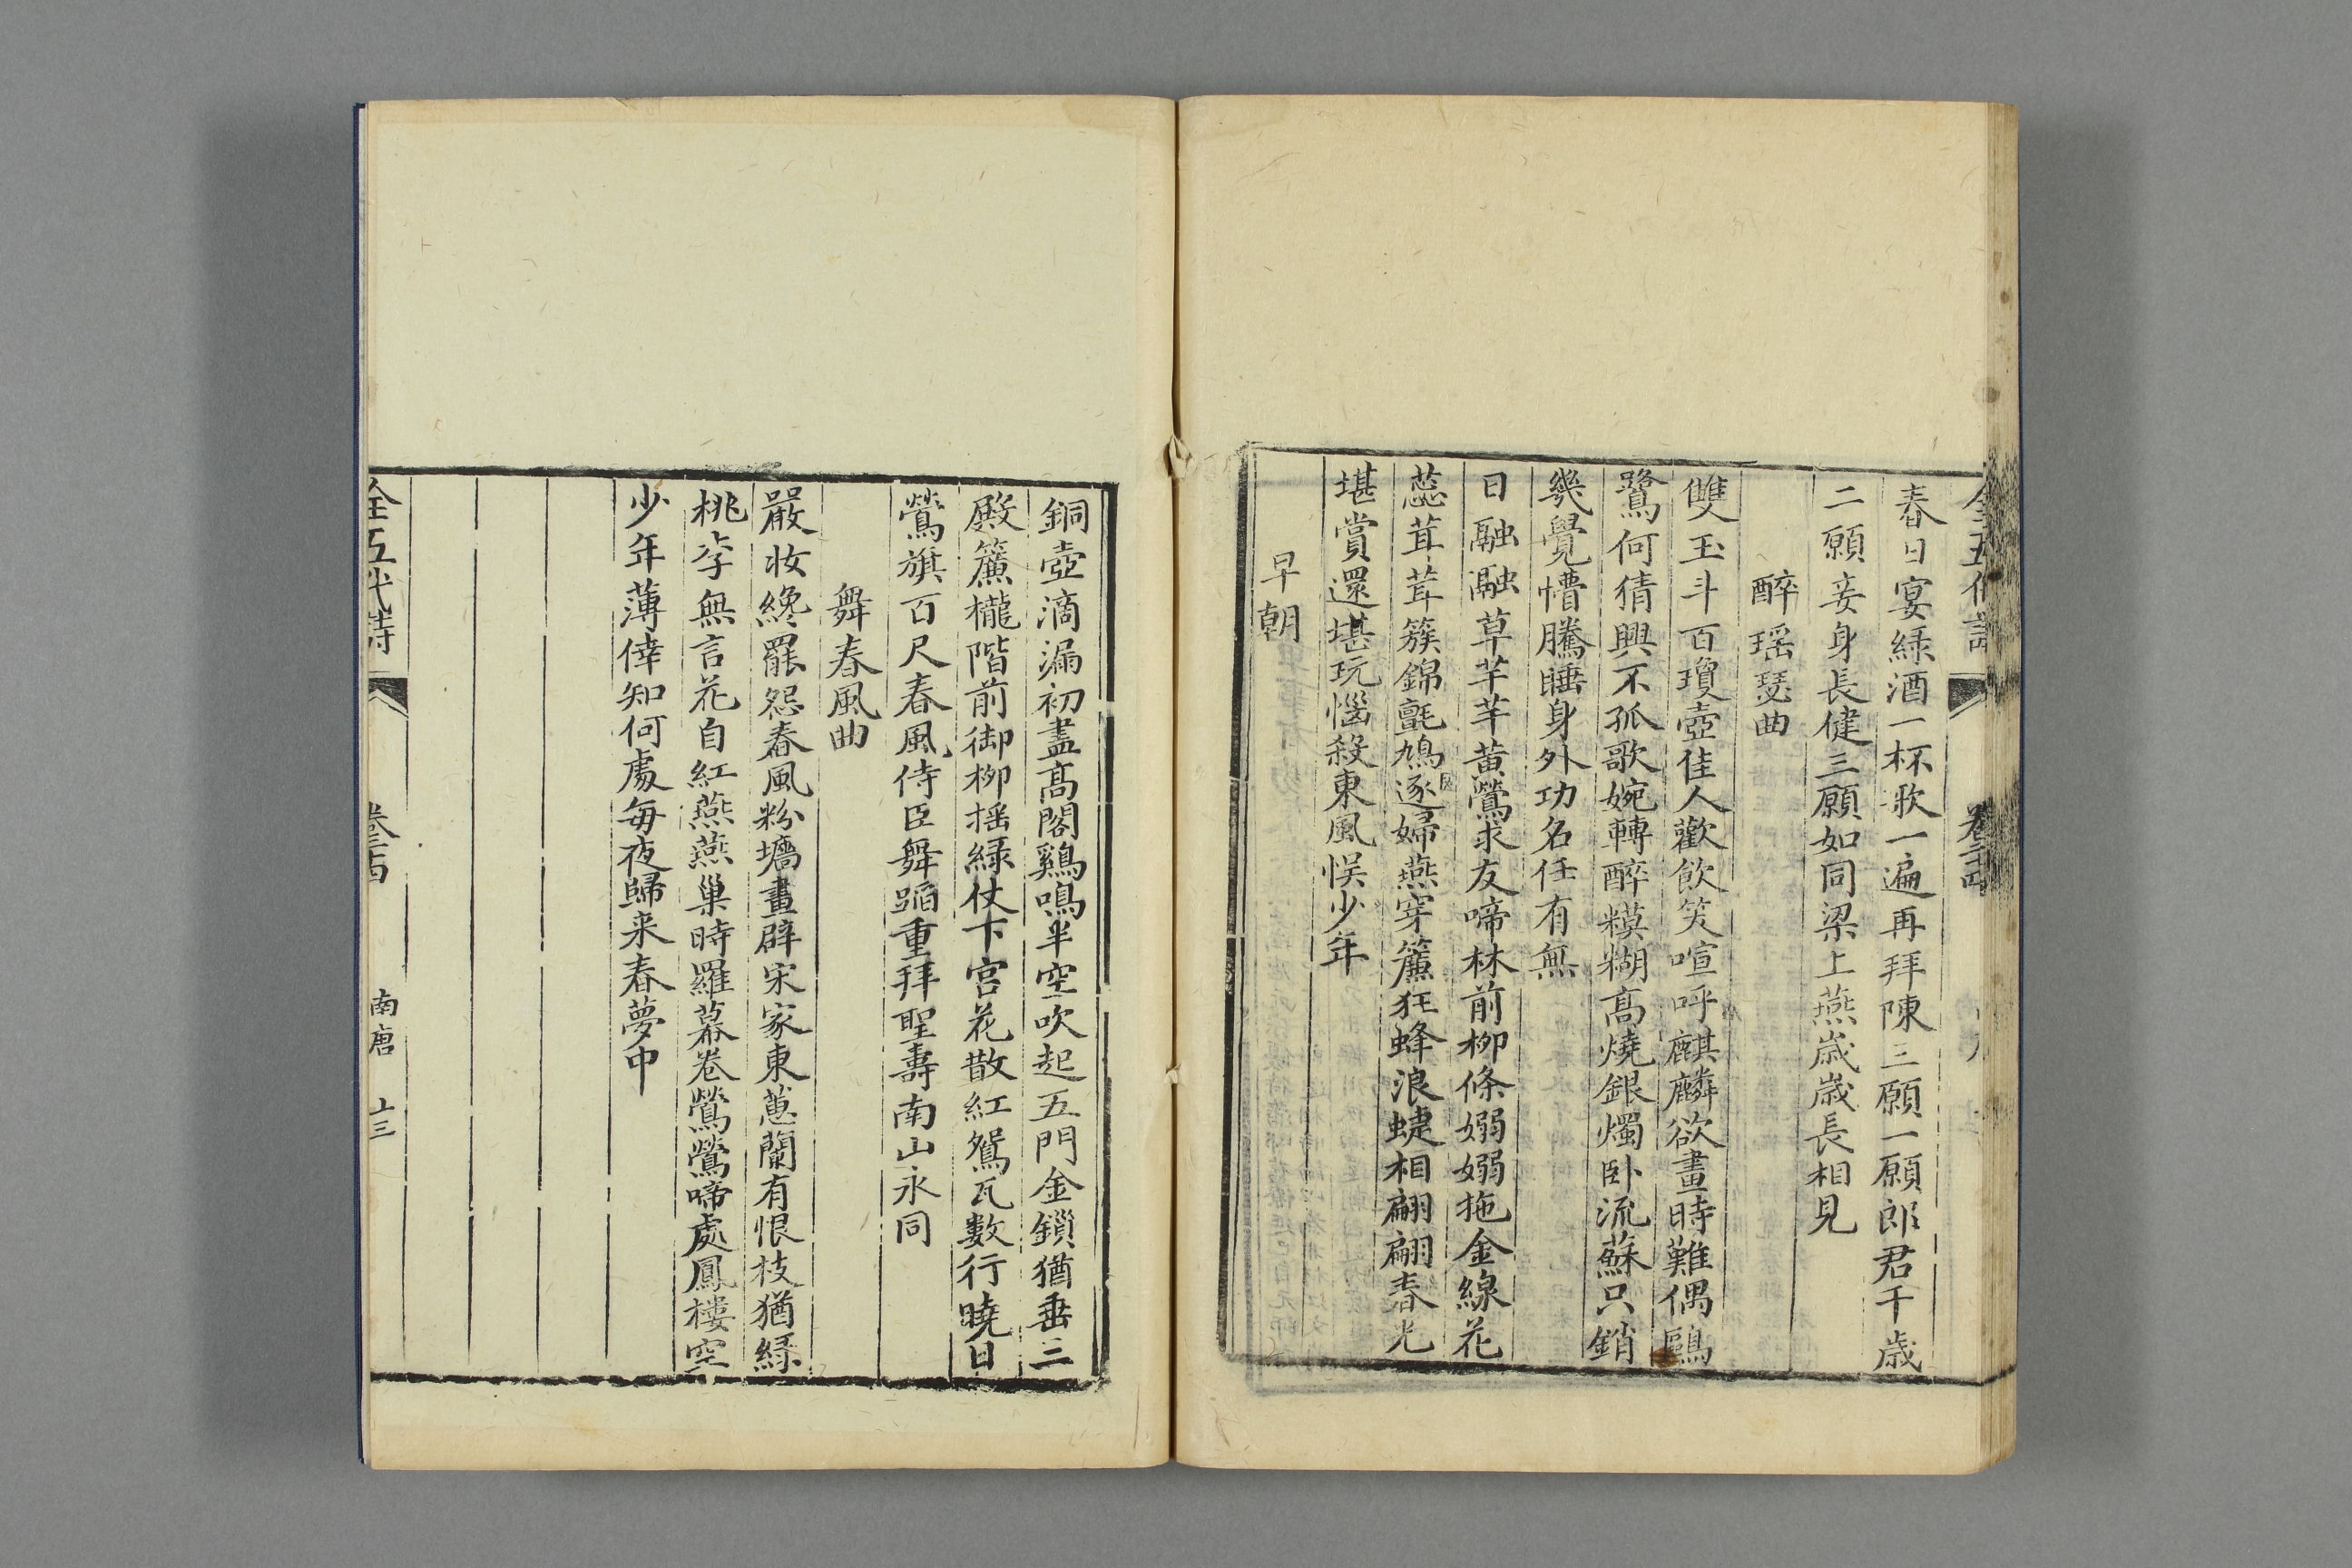 全五代詩
卷三十四
春日宴緑酒一杯歌一遍再拜陳三願一願郎君千歳
二願妾身長健三願如同梁上燕歳歳長相見
醉瑶瑟曲
雙玉斗百瓊壺佳人歡飲笑喧呼麒麟欲畫時難偶鷗
鷺何猜興不孤歌婉轉醉糢糊高燒銀燭卧流蘇只銷
幾覺懵騰睡身外功名任有無
日融融草芊芊黄鶯求友啼林前柳條嫋嫋拖金線花
蕊茸茸簇錦氈鳩逐婦燕穿簾狂蜂浪蝶相翩翩春光
堪賞還堪玩惱殺東風悮少年
早朝
銅壺滴漏初盡高閣鷄鳴半空吹起五門金鎖猶垂三
殿簾櫳階前御栁揺緑仗下宫花散紅鴛瓦數行曉日
鶯旗百尺春風侍臣舞蹈重拜聖壽南山永同
舞春風曲
嚴妝纔罷怨春風粉墻畫壁宋家東蕙蘭有恨枝猶緑
桃李無言花自紅燕燕巢時羅幕卷鶯鶯啼處鳳樓空
少年薄倖知何處每夜歸来春夢中
全五代詩
卷三十四
南唐
十三